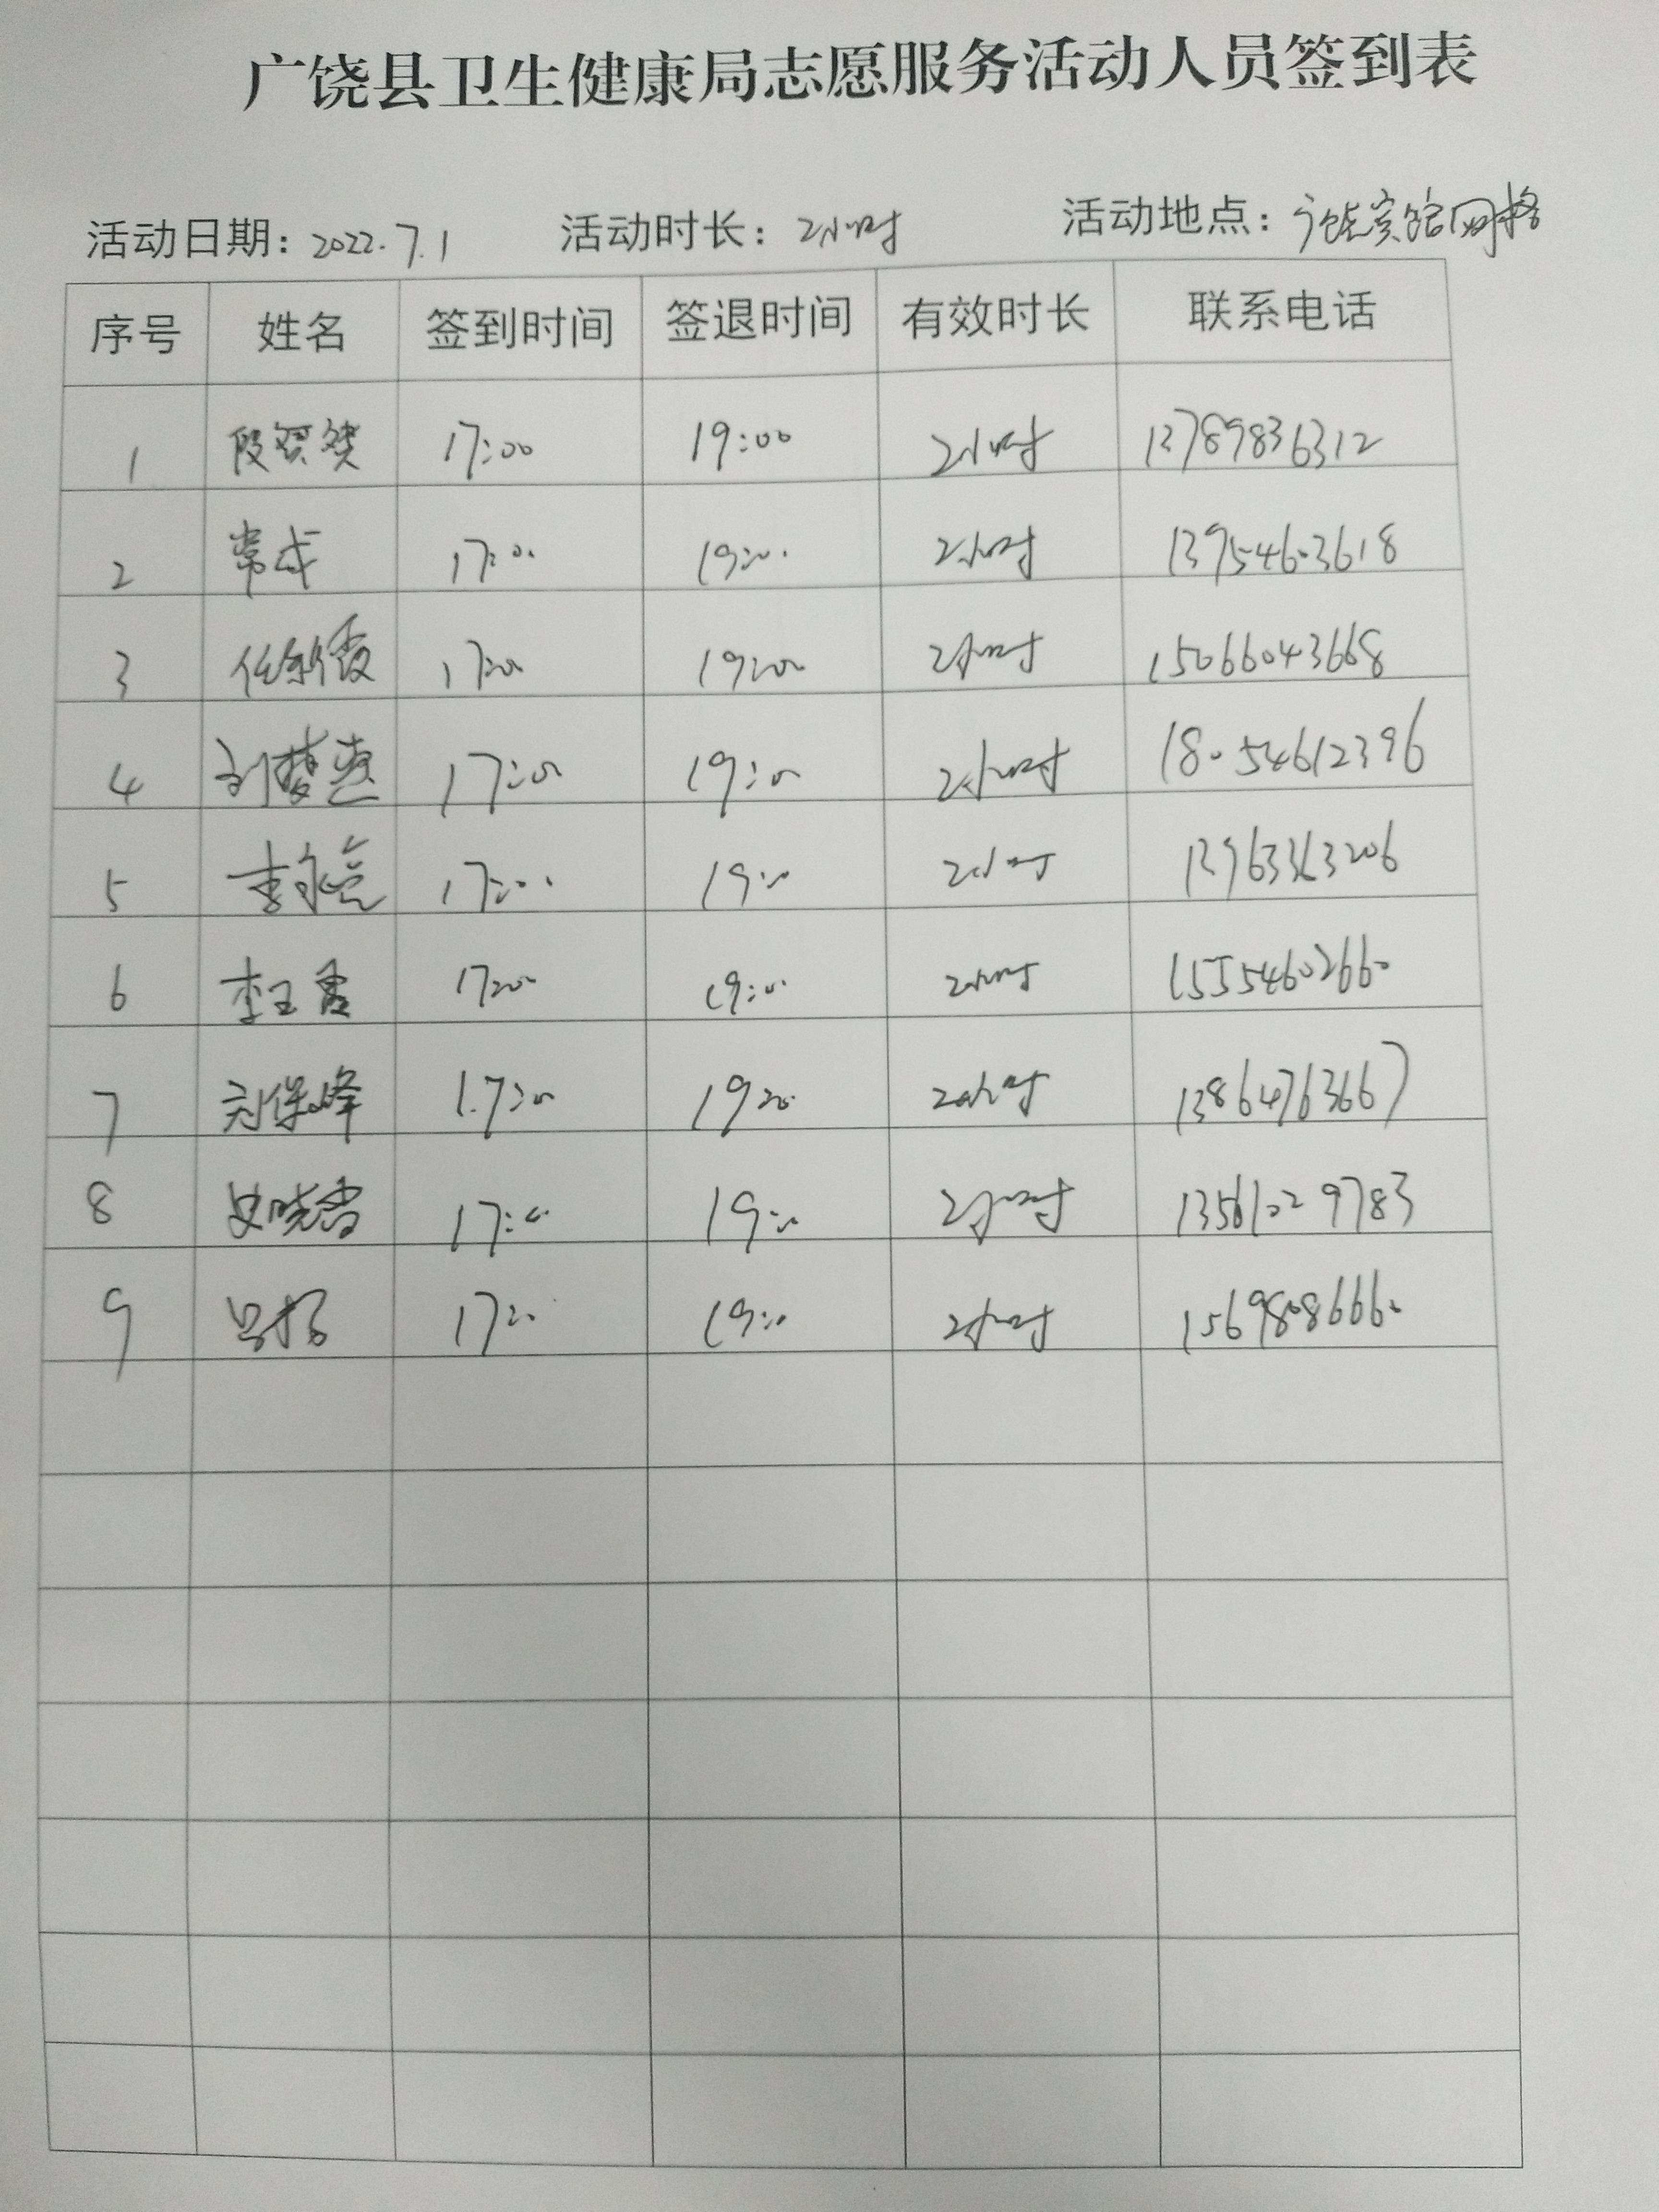 广饶县卫生健康局志愿服务活动人员签到表
活动日期：2022.7.1 活动时长：2小时 活动地点：广饶宾馆网格
序号 姓名 签到时间 签退时间 有效时长 联系电话
1 段 17:00 19:00 2小时 13789836312
2 常成 17:00 19:00 2小时 13954603618
3 任 霞 17:00 19:00 2小时 15066043668
4 刘梦慧 17:00 19:00 2小时 18054612396
5 李永亮 17:00 19:00 2小时 13963363206
6 李玉香 17:00 19:00 2小时 15554602660
7 刘保峰 17:00 19:00 2小时 13864763667
8 史晓雪 17:00 19:00 2小时 13561029783
9 吕 17:00 19:00 2小时 15698086660